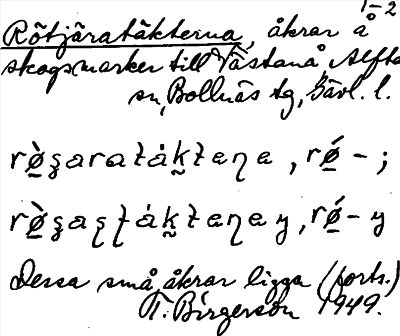 1-2
Rõtjäratäkterna, åkrar å
skogsmarker till Västanå Alfta
sn, Bollnäs tg, Gävl. l.
rø̀ʂaraták̬teɳa, rǿ-;
rø̀ʂaʂʈák̬teɳa y, rǿ- y
Dessa små åkrar ligga (forts.)
T. Birgerson 1949.